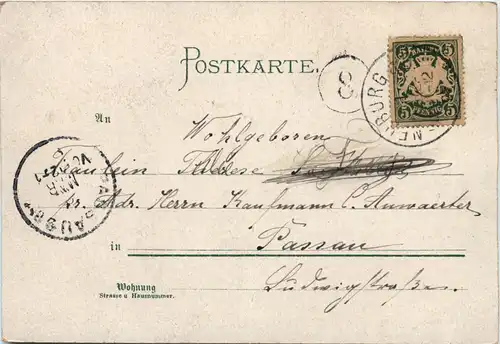 POSTKARTE.
8
BAYERN
5 5
PFENNIG
5 5
NEUBURG
An Wohlgeboren
Fräulein Therese
pr. Adr. Herrn Kaufmann C. Anwaerter
in Passau
Ludwigstraße.
Wohnung
Strasse u Hausnummer.
PASSAU